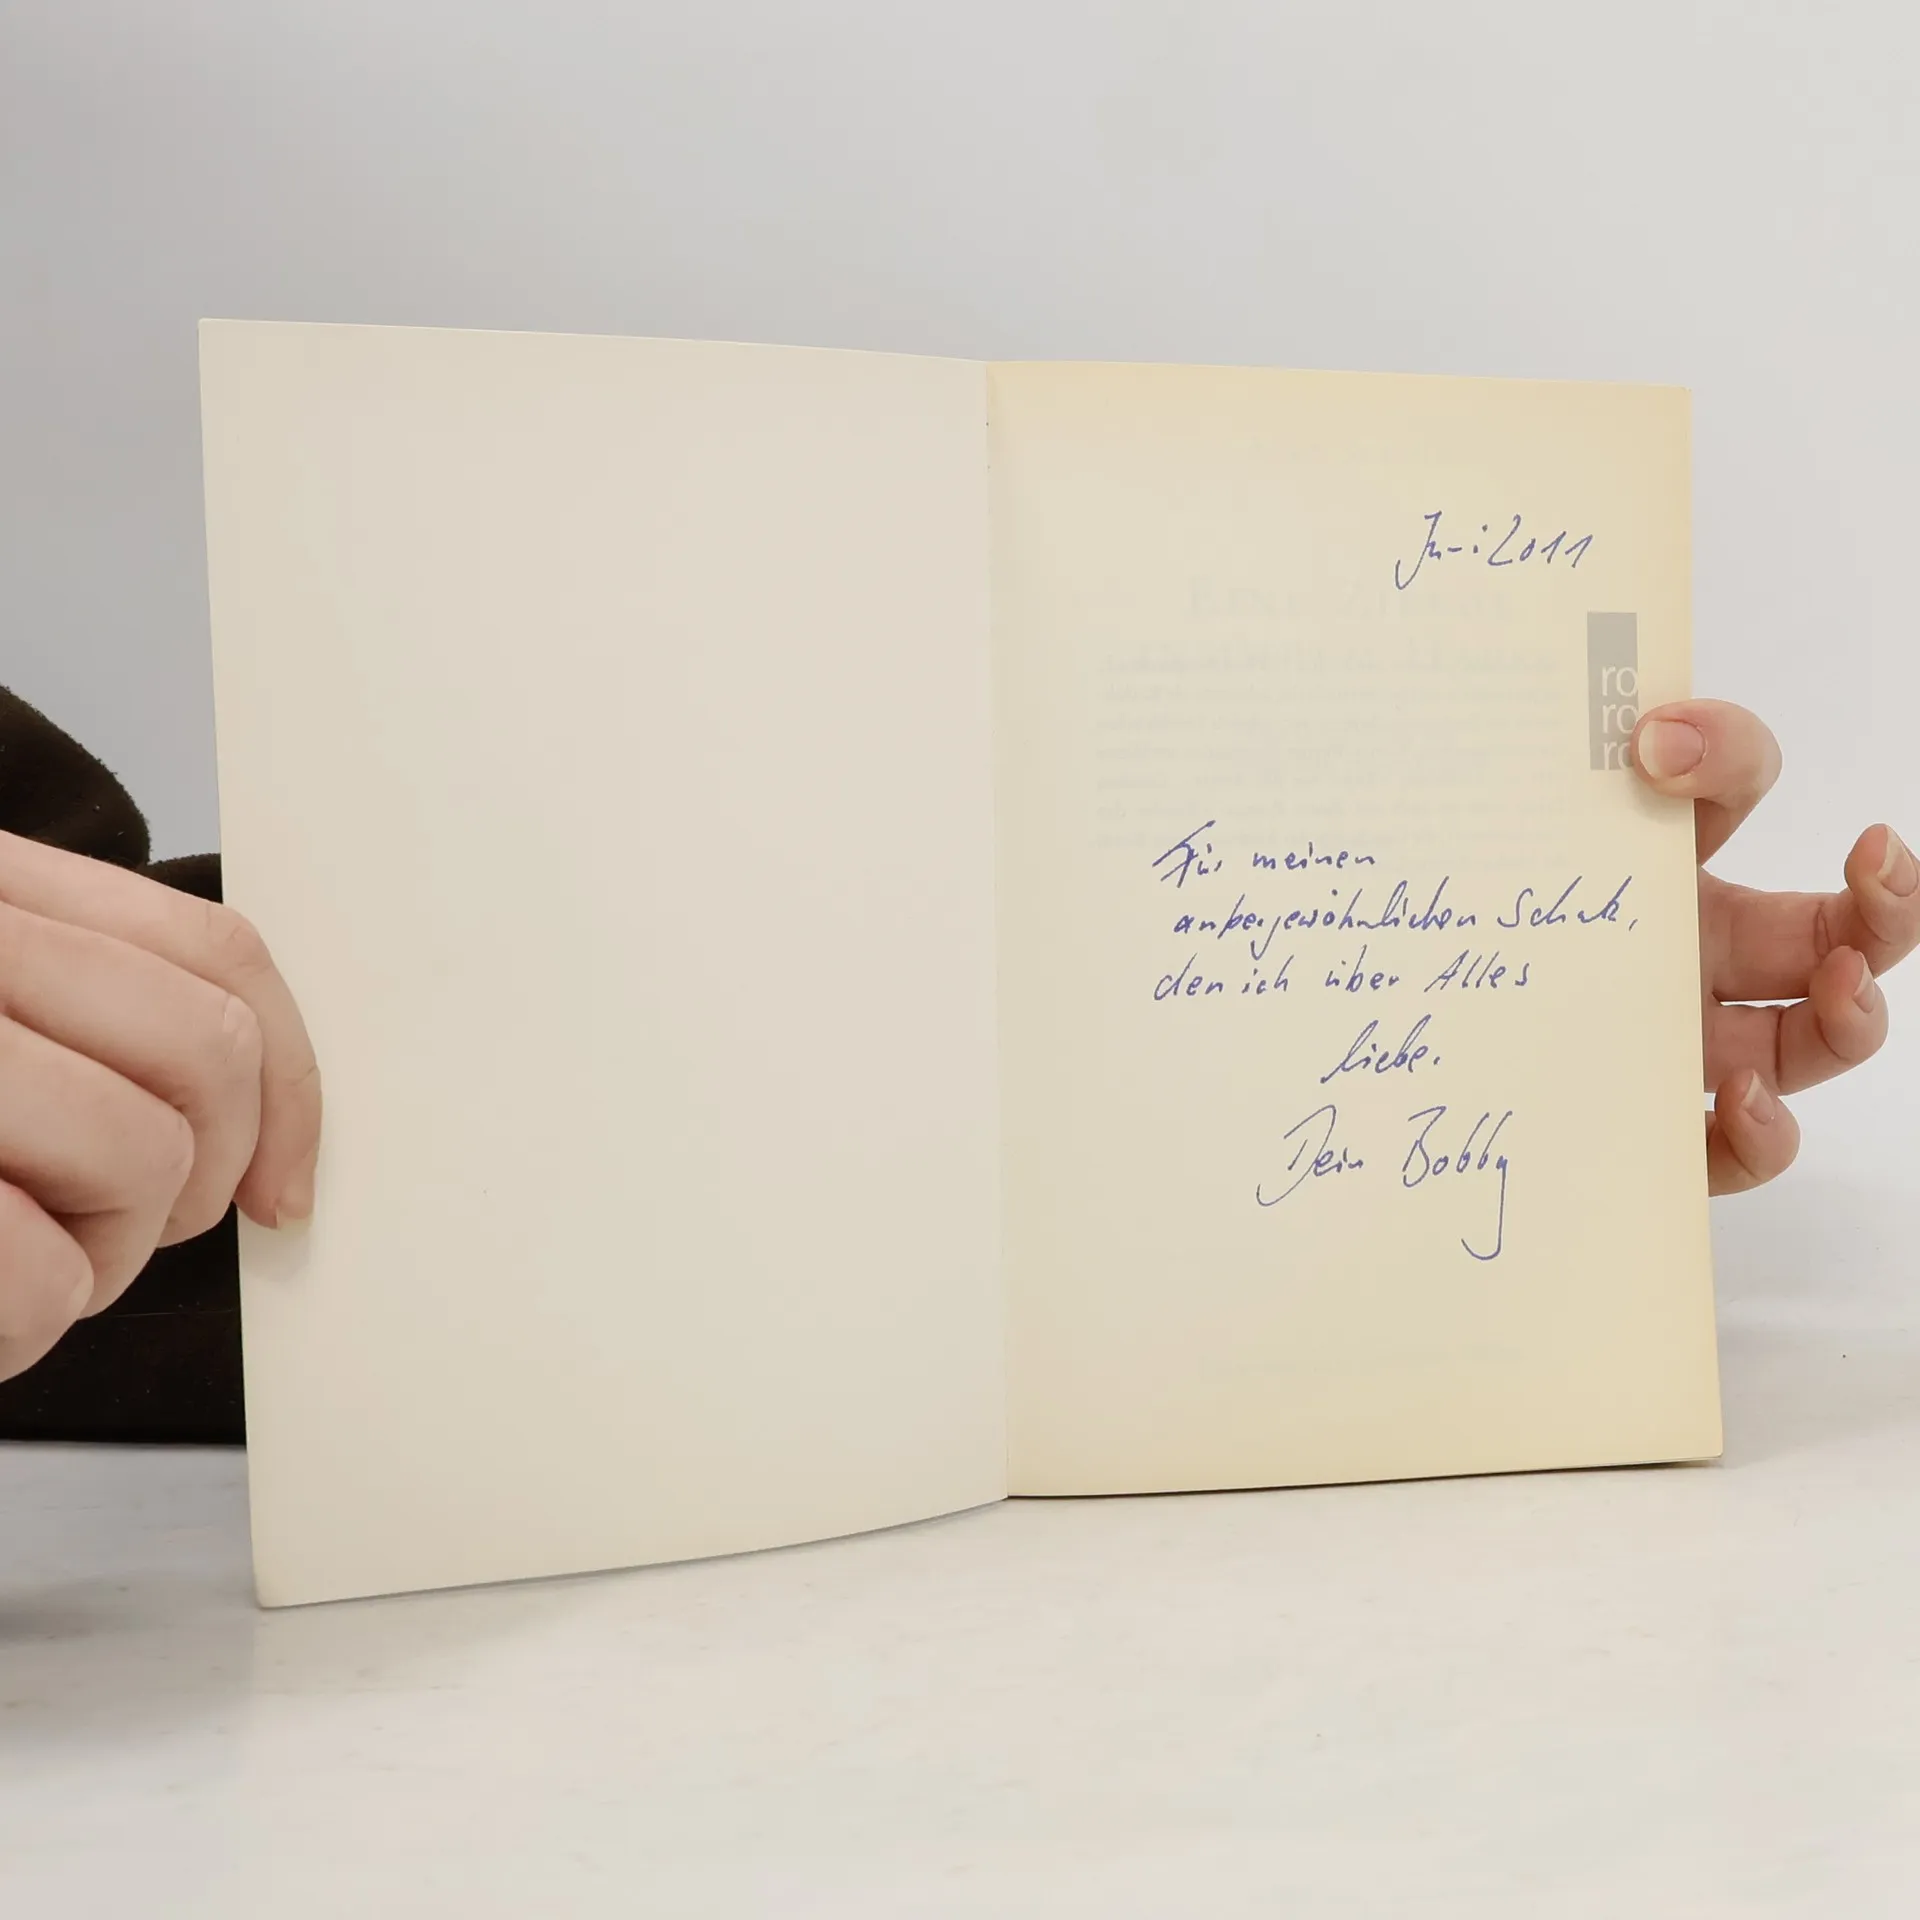 Juni 2011
ro
ro
ro
Für meinen
außergewöhnlichen Schatz,
den ich über Alles
liebe.
Dein Bobby